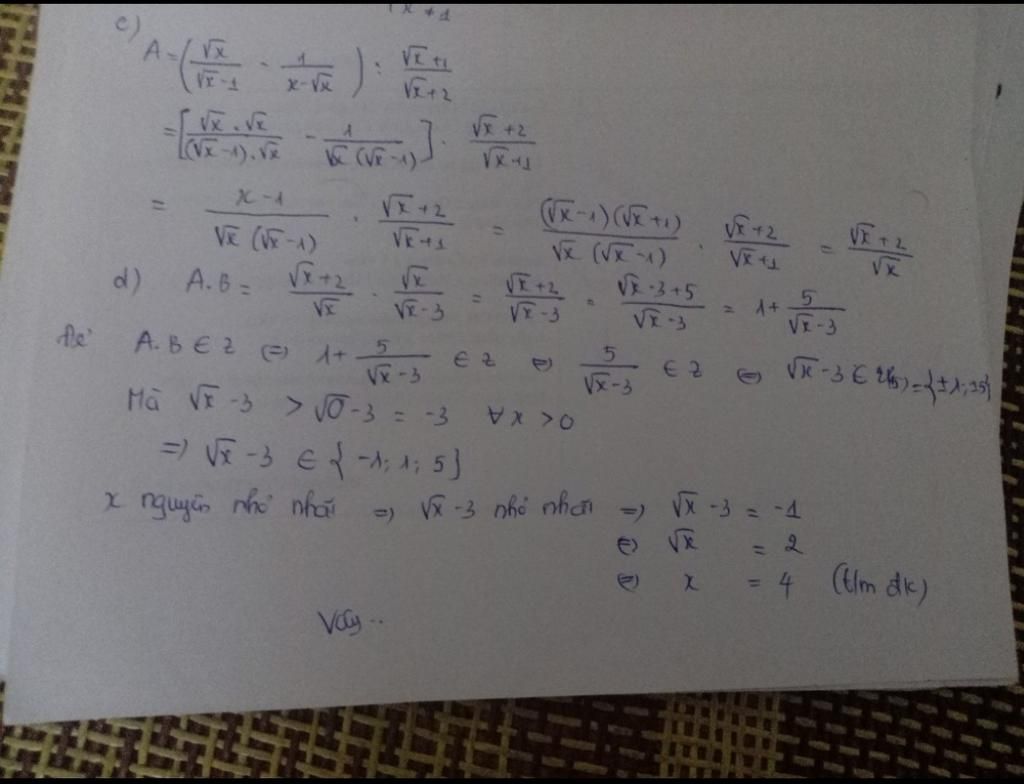 x ≠ 1
c)
A = (√x/(√x-1) - 1/(x-√x)) : (√x+1)/(√x+2)
= [√x.√x/((√x-1).√x) - 1/(√x(√x-1))] . (√x+2)/(√x+1)
= (x-1)/(√x(√x-1)) . (√x+2)/(√x+1) = (√x-1)(√x+1)/(√x(√x-1)) . (√x+2)/(√x+1) = (√x+2)/√x
d) A.B = (√x+2)/√x . √x/(√x-3) = (√x+2)/(√x-3) = (√x-3+5)/(√x-3) = 1+ 5/(√x-3)
Để A.B ∈ Z (=) 1+ 5/(√x-3) ∈ Z (=) 5/(√x-3) ∈ Z (=) √x-3 ∈ Ư(5)={±1;±5}
Mà √x-3 > √0-3 = -3 ∀x >0
=) √x-3 ∈ {-1; 1; 5}
x nguyên nhỏ nhất =) √x-3 nhỏ nhất =) √x-3 = -1
(=) √x = 2
(=) x = 4 (t/m đk)
Vậy..